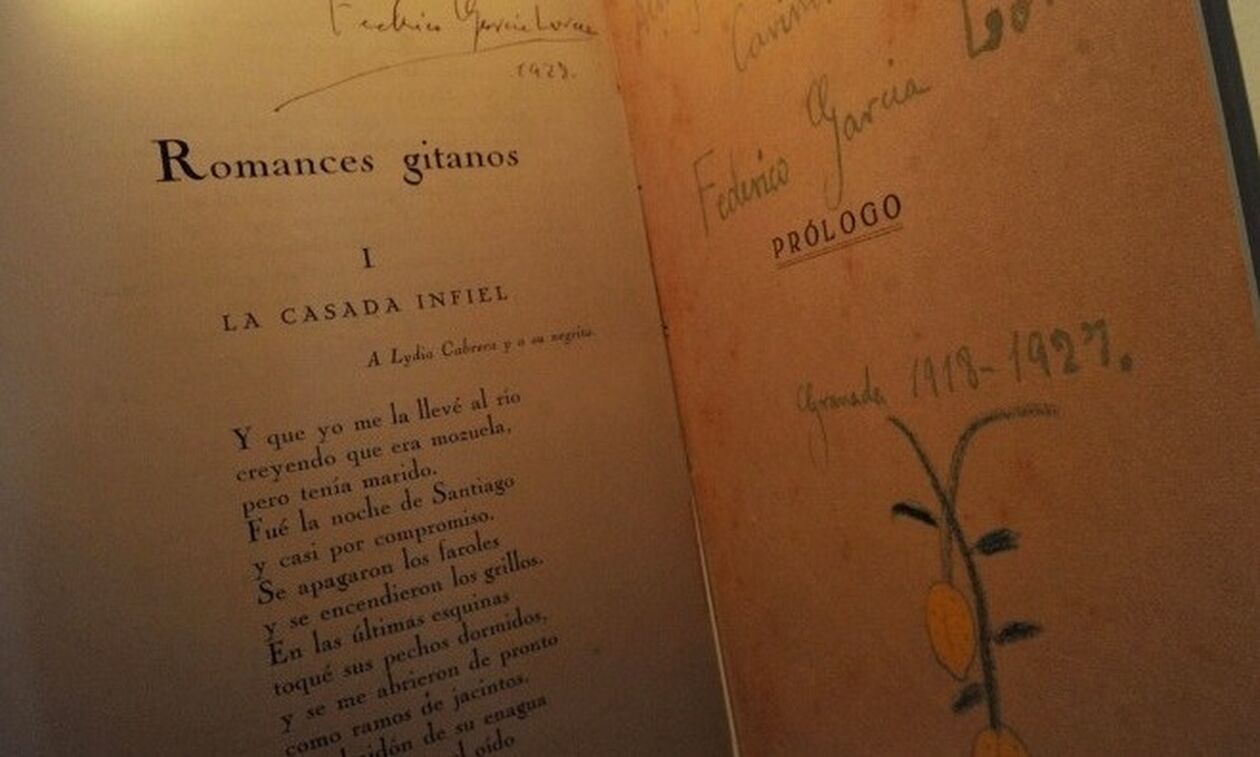 Federico García Lorca
1928.
Romances gitanos
I
LA CASADA INFIEL
A Lydia Cabrera y a su negrita.
Y que yo me la llevé al río
creyendo que era mozuela,
pero tenía marido.
Fué la noche de Santiago
y casi por compromiso.
Se apagaron los faroles
y se encendieron los grillos.
En las últimas esquinas
toqué sus pechos dormidos,
y se me abrieron de pronto
como ramos de jacintos.
de su enagua
oído
Federico García
PRÓLOGO
Granada 1918-1927.